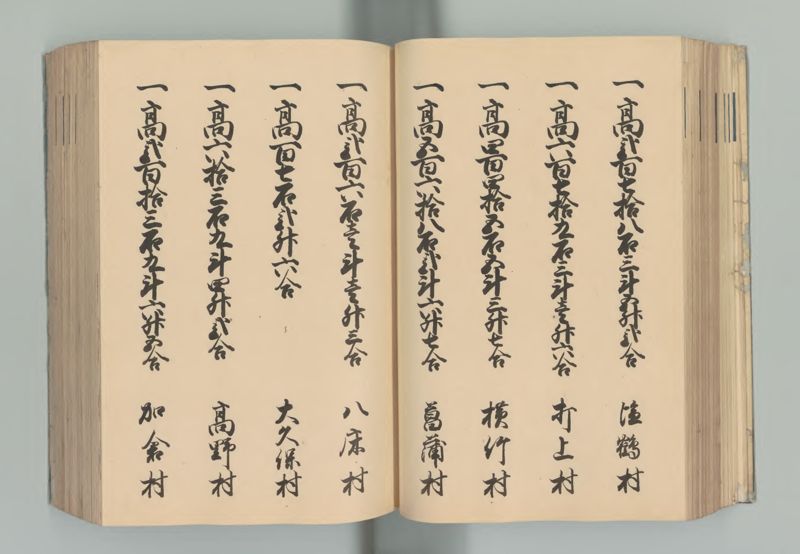 一高弐百七拾八石三斗五升弐合 鶴村
一高六百七拾九石三斗壱升六合 打上村
一高四百四拾五石五斗三升七合 横竹村
一高五百六拾八石弐斗六升七合 菖蒲村
一高弐百六石壱斗壱升三合 八床村
一高百七石弐升六合 大久保村
一高六拾三石九斗四升弐合 高野村
一高弐百拾三石九斗六升五合 加倉村